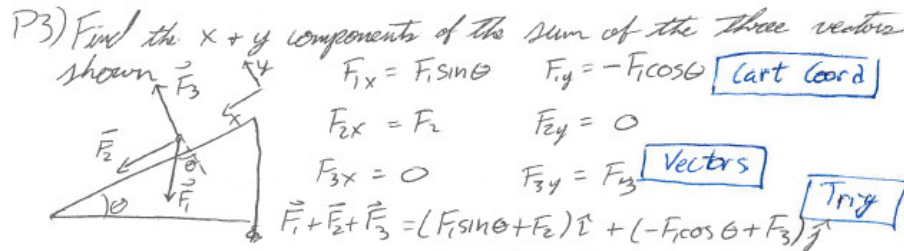 P3) Find the x + y components of the sum of the three vectors
shown F⃗₃ y x F₁ₓ = F₁sinθ F₁y = -F₁cosθ Cart Coord
F⃗₂ θ F₂ₓ = F₂ F₂y = 0
F⃗₁ θ F₃ₓ = 0 F₃y = F₃ Vectors
Trig
F⃗₁+F⃗₂+F⃗₃ = (F₁sinθ+F₂) î + (-F₁cosθ+F₃) ĵ